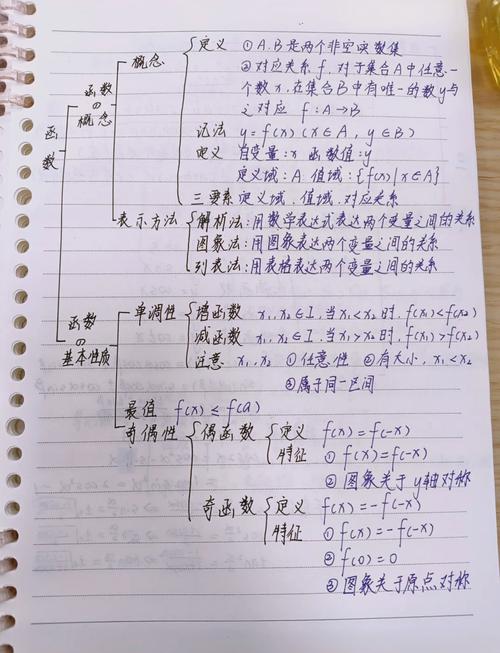 函数
函数的概念
概念
定义 ①A.B是两个非空实数集
②对应关系f,对于集合A中任意一
个数x,在集合B中有唯一的数y与
之对应 f:A→B
记法 y=f(x)(x∈A,y∈B)
定义 自变量:x 函数值:y
定义域:A.值域:{f(x)|x∈A}
三要素 定义域.值域.对应关系
表示方法
解析法:用数学表达式表达两个变量之间的关系
图象法:用图象表达两个变量之间的关系
列表法:用表格表达两个变量之间的关系
函数的基本性质
单调性
增函数 x₁,x₂∈I,当x₁<x₂时,f(x₁)<f(x₂)
减函数 x₁,x₂∈I,当x₁>x₂时,f(x₁)>f(x₂)
注意 x₁,x₂ ①任意性 ②有大小,x₁<x₂
③属于同一区间
最值 f(x)≤f(a)
奇偶性
偶函数 定义 f(x)=f(-x)
特征 ①f(x)=f(-x)
②图象关于y轴对称
奇函数 定义 f(x)=-f(-x)
特征 ①f(x)=-f(-x)
②f(0)=0
③图象关于原点对称